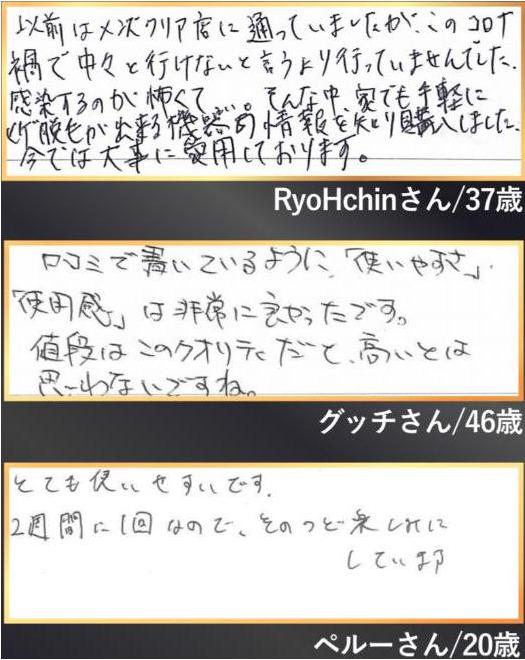 以前はメンズクリア店に通っていましたが、このコロナ
禍で中々と行けないと言うより行っていませんでした。
感染するのが怖くて…。そんな中、家でも手軽に
脱毛が出来る機器の情報を知り購入しました。
今では大事に愛用しております。
RyoHchinさん/37歳
口コミで書いているように、「使いやすさ」・
「使用感」は非常に良かったです。
値段はこのクオリティだと、高いとは
思わないですね。
グッチさん/46歳
とても使いやすいです。
2週間に1回なので、そのつど楽しみに
しています
ペルーさん/20歳